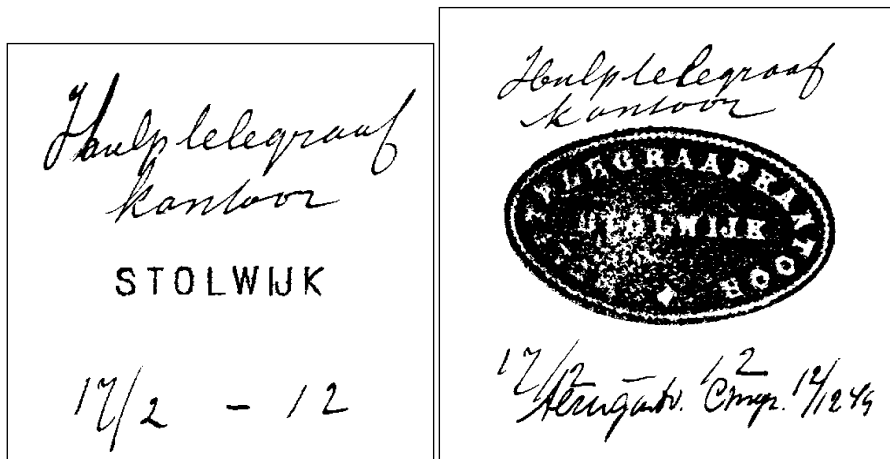 Hulptelegraaf
kantoor
STOLWIJK
17/2 - 12
Hulptelegraaf
kantoor
TELEGRAAFKANTOOR
STOLWIJK
17/2 - 12
12/12 49